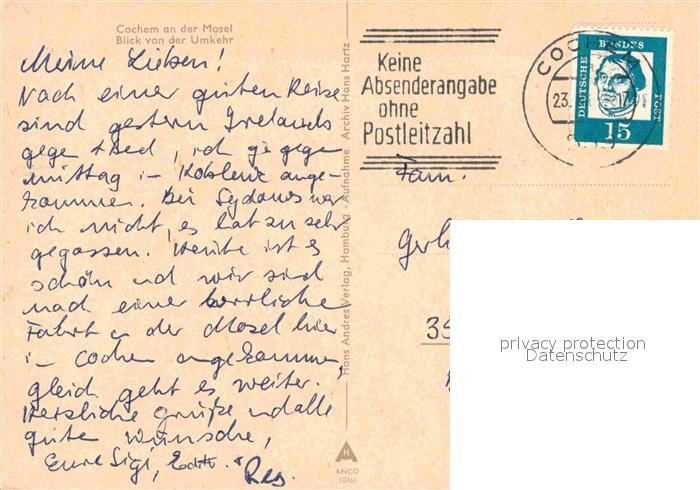 Cochem an der Mosel
Blick von der Umkehr
Meine Lieben!
Nach einer guten Reise
sind gestern
gegen Abend, ich gegen
Mittag in Koblenz ange-
kommen. Bei war
ich nicht, es hat zu sehr
gegossen. Heute ist es
schön und wir sind
nach einer herrlichen
Fahrt an der Mosel hier
in Cochem angekommen,
gleich geht es weiter.
Herzliche Grüße und alle
gute Wünsche,
Eure Sigi, Edith.
Hans Andres Verlag, Hamburg - Aufnahme Archiv Hans Hartz
H
ANCO
10761
Keine
Absenderangabe
ohne
Postleitzahl
COCHEM
23.
DEUTSCHE BUNDESPOST
15
Fam.
Gerh
35
privacy protection
Datenschutz